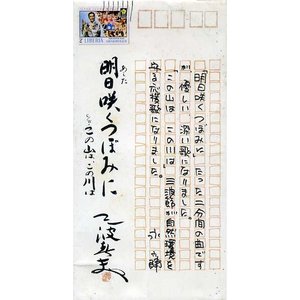 「明日咲くつぼみに」たった二分間の曲です
が優しい、深い歌になりました。
「この山は、この川は」三波節が自然環境を
守る応援歌になりました。
永六輔
LIBERIA
あした
明日咲くつぼみに
この山は この川は
三波春夫